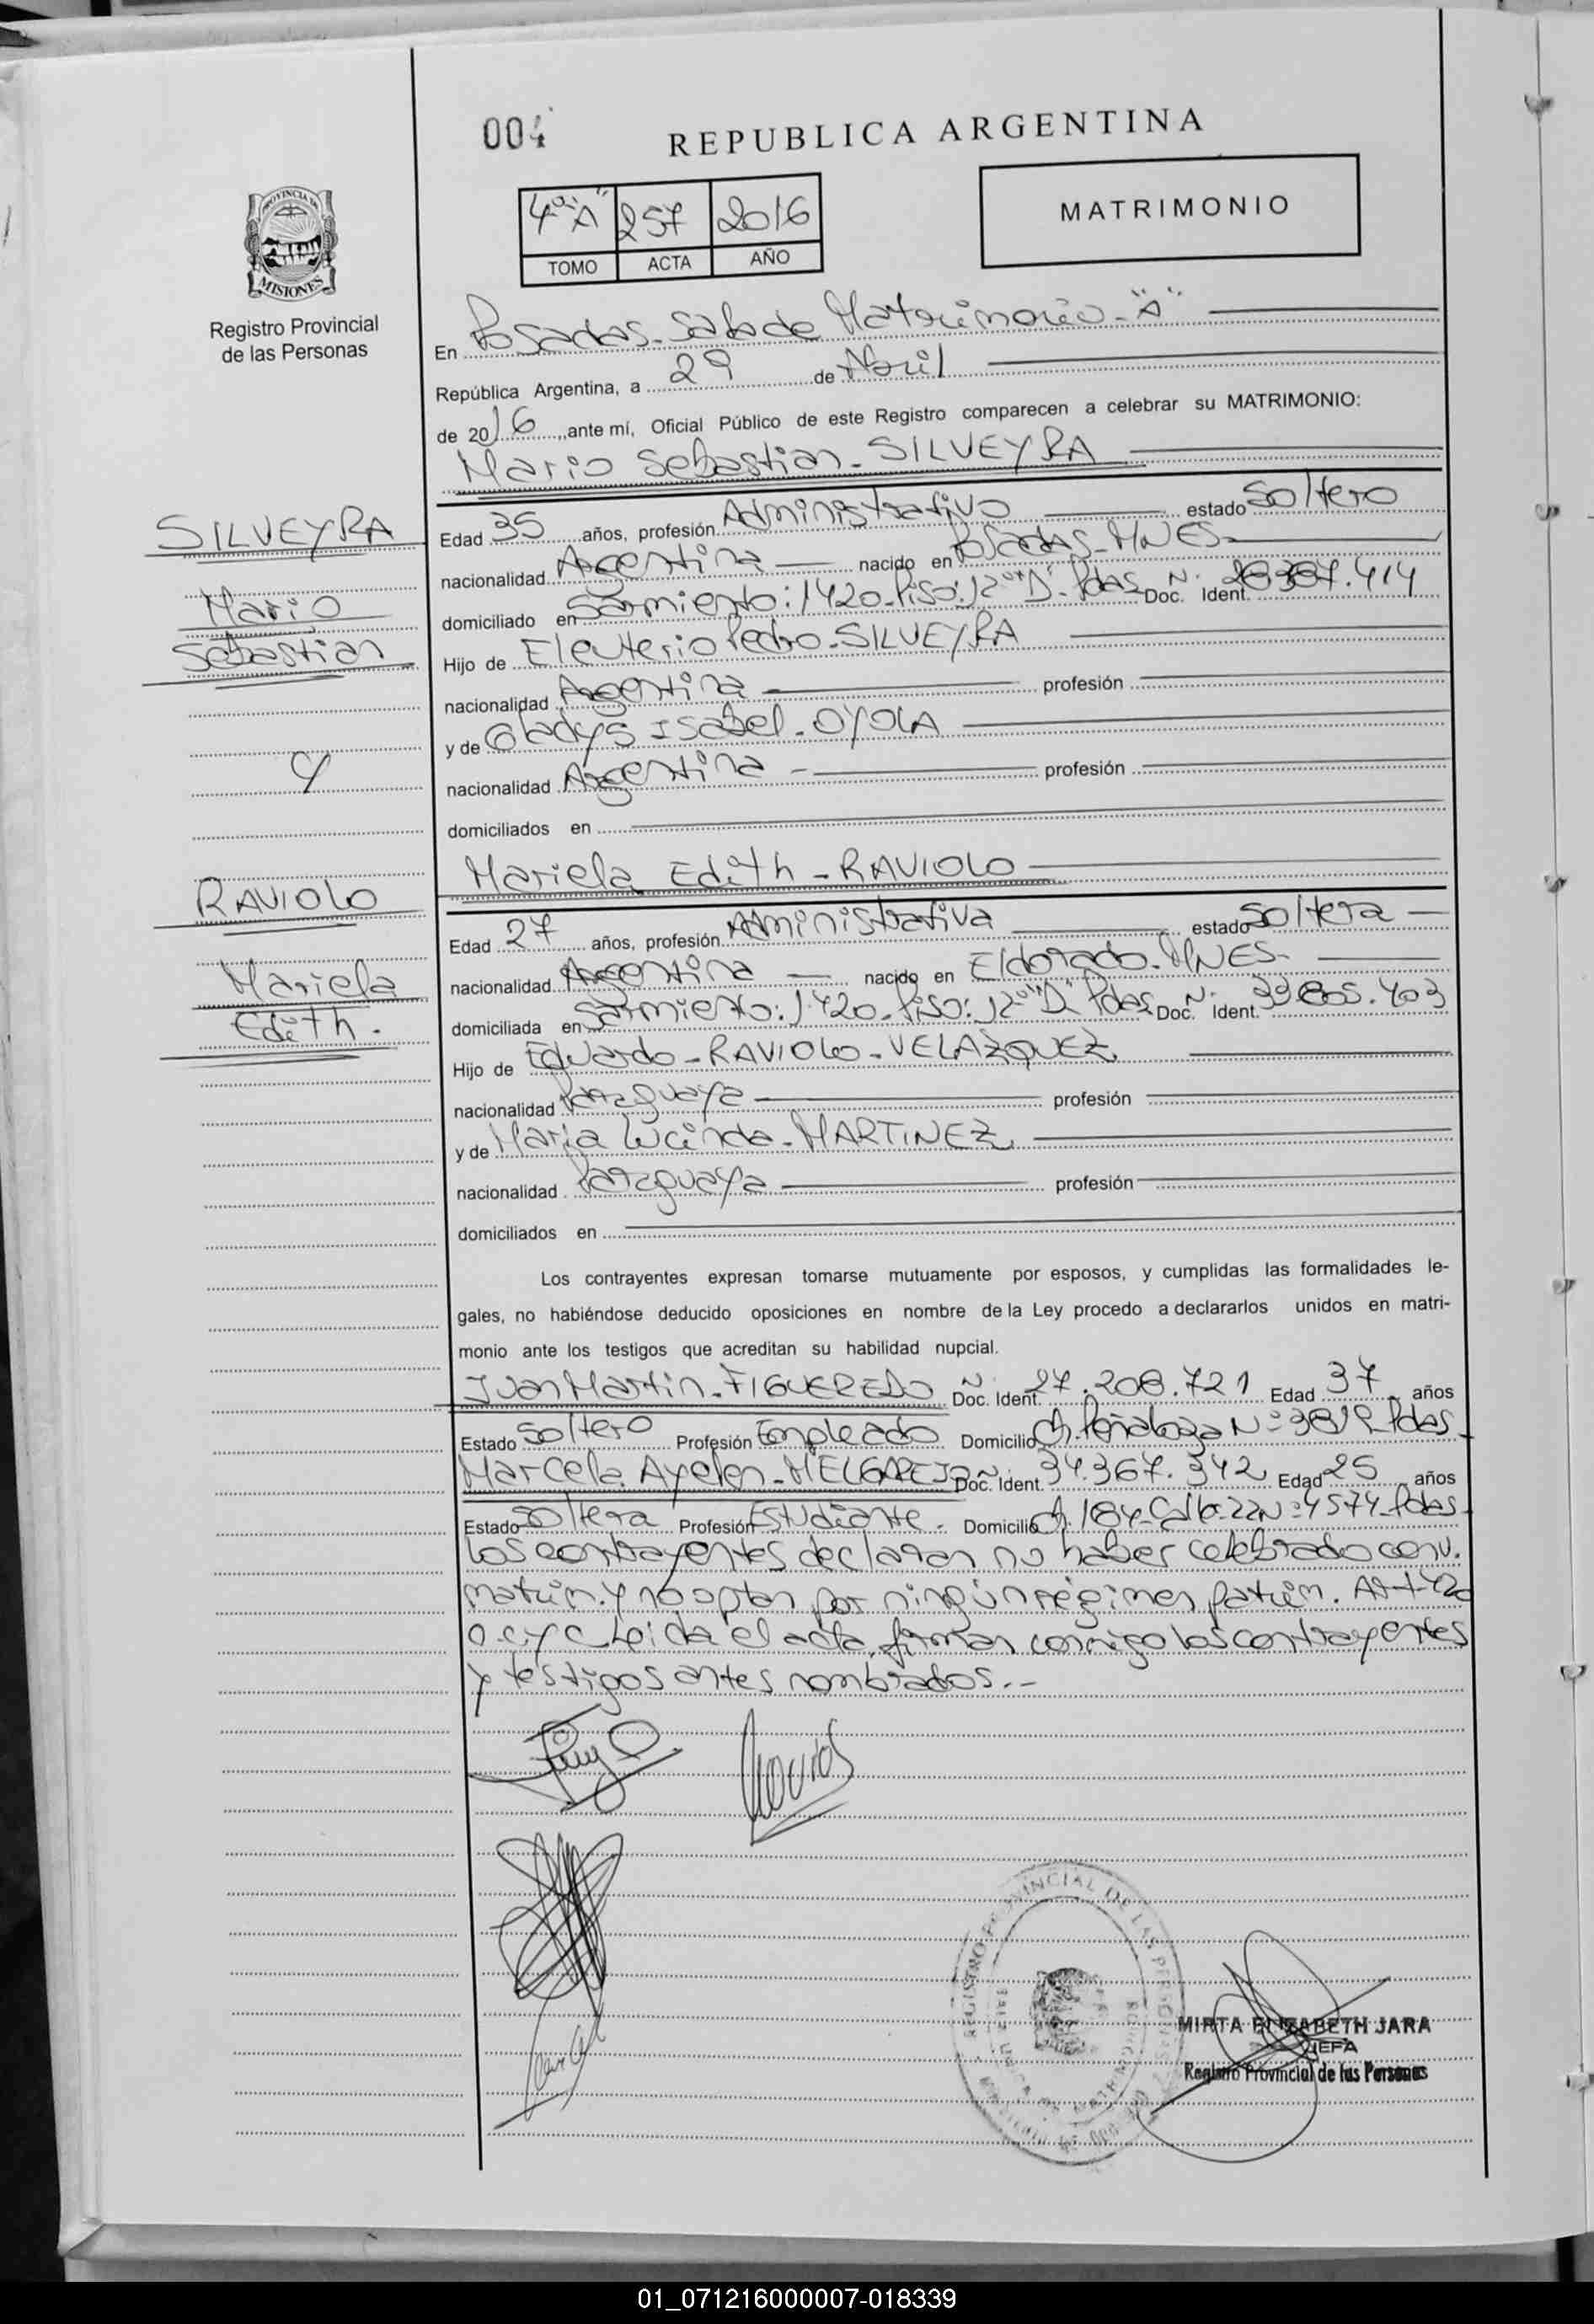 004
REPUBLICA ARGENTINA
4º "A" 257 2016
TOMO ACTA AÑO
MATRIMONIO
PROVINCIA DE
MISIONES
Registro Provincial
de las Personas
En Posadas - Sala de Matrimonio - "A"
República Argentina, a 29 de Abril
de 2016, ante mí, Oficial Público de este Registro comparecen a celebrar su MATRIMONIO:
Mario Sebastian - SILVEYRA
SILVEYRA
Mario
Sebastian
y
RAVIOLO
Mariela
Edith.
Edad 35 años, profesión Administrativo estado Soltero
nacionalidad Argentina nacido en Posadas - MNES -
domiciliado en Sarmiento: 1420 - Piso: 12º "D" - Pdas Doc. Nº Ident. .414
Hijo de Eleuterio Pedro - SILVEYRA
nacionalidad Argentina profesión
y de Gladys Isabel - OYOLA
nacionalidad Argentina - profesión
domiciliados en
Mariela Edith - RAVIOLO
Edad 27 años, profesión Administrativa estado Soltera
nacionalidad Argentina nacido en Eldorado - MNES -
domiciliada en Sarmiento: 1420 - Piso: 12º "D" Pdas Doc. Nº Ident. .403
Hijo de Eduardo - RAVIOLO - VELAZQUEZ
nacionalidad Paraguaya profesión
y de Maria Lucinda - MARTINEZ
nacionalidad Paraguaya profesión
domiciliados en
Los contrayentes expresan tomarse mutuamente por esposos, y cumplidas las formalidades le-
gales, no habiéndose deducido oposiciones en nombre de la Ley procedo a declararlos unidos en matri-
monio ante los testigos que acreditan su habilidad nupcial.
Juan Martin - FIGUEREDO Doc. Nº Ident. 27.208.721 Edad 37 años
Estado Soltero Profesión Empleado Domicilio Ch. Peñaloza Nº 3812 Pdas -
Marcela Ayelen - MELGAREJO Doc. Nº Ident. 34.367.342 Edad 25 años
Estado Soltera Profesión Estudiante - Domicilio Ch. 184 - Calle 22 Nº 4574 - Pdas -
Los contrayentes declaran no haber celebrado conv.
matrim. y no optan por ningún régimen patrim. Art. 420
C.C y C Leida el acta, firman conmigo los contrayentes
y testigos antes nombrados.-
REGISTRO PROVINCIAL DE LAS PERSONAS
MIRTA ELIZABETH JARA
JEFA
Registro Provincial de las Personas
01_071216000007-018339